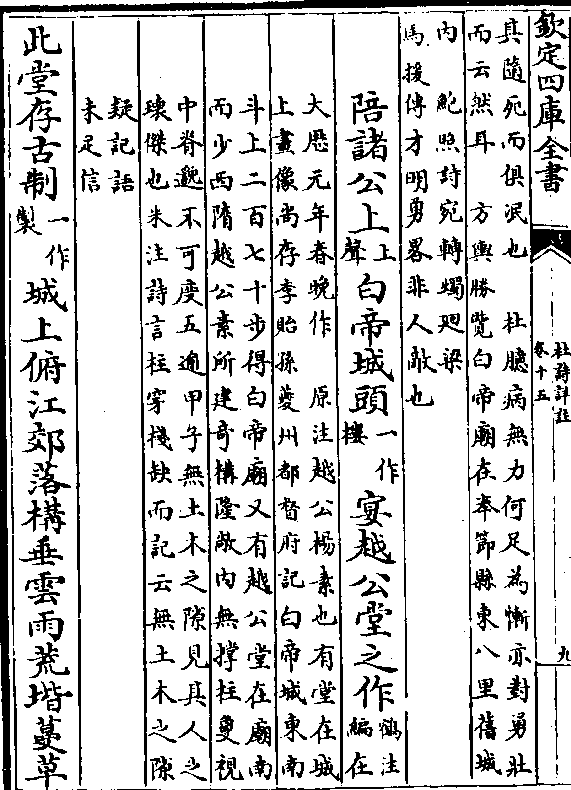 欽定四庫全書
杜詩詳註
卷十五
九
具隨死而俱泯也　杜臆病無力何足為慚亦對勇壯
而云然耳　方輿勝覽白帝廟在奉節縣東八里舊城
内　鮑照詩宛轉燭廻梁
馬援傳才明勇畧非人敵也
陪諸公上上聲白帝城頭一作樓宴越公堂之作鶴注編在
大歴元年春晚作　原注越公楊素也有堂在城
上畫像尚存李貽孫夔州都督府記白帝城東南
斗上二百七十步得白帝廟又有越公堂在廟南
而少西隋越公素所建奇構隆敞内無撑柱夐視
中脊邈不可度五逾甲子無土木之隙見其人之
瓌傑也朱注詩言柱穿棧缺而記云無土木之隙
疑記語
未足信
此堂存古制一作製城上俯江郊落構垂雲雨荒堦蔓草